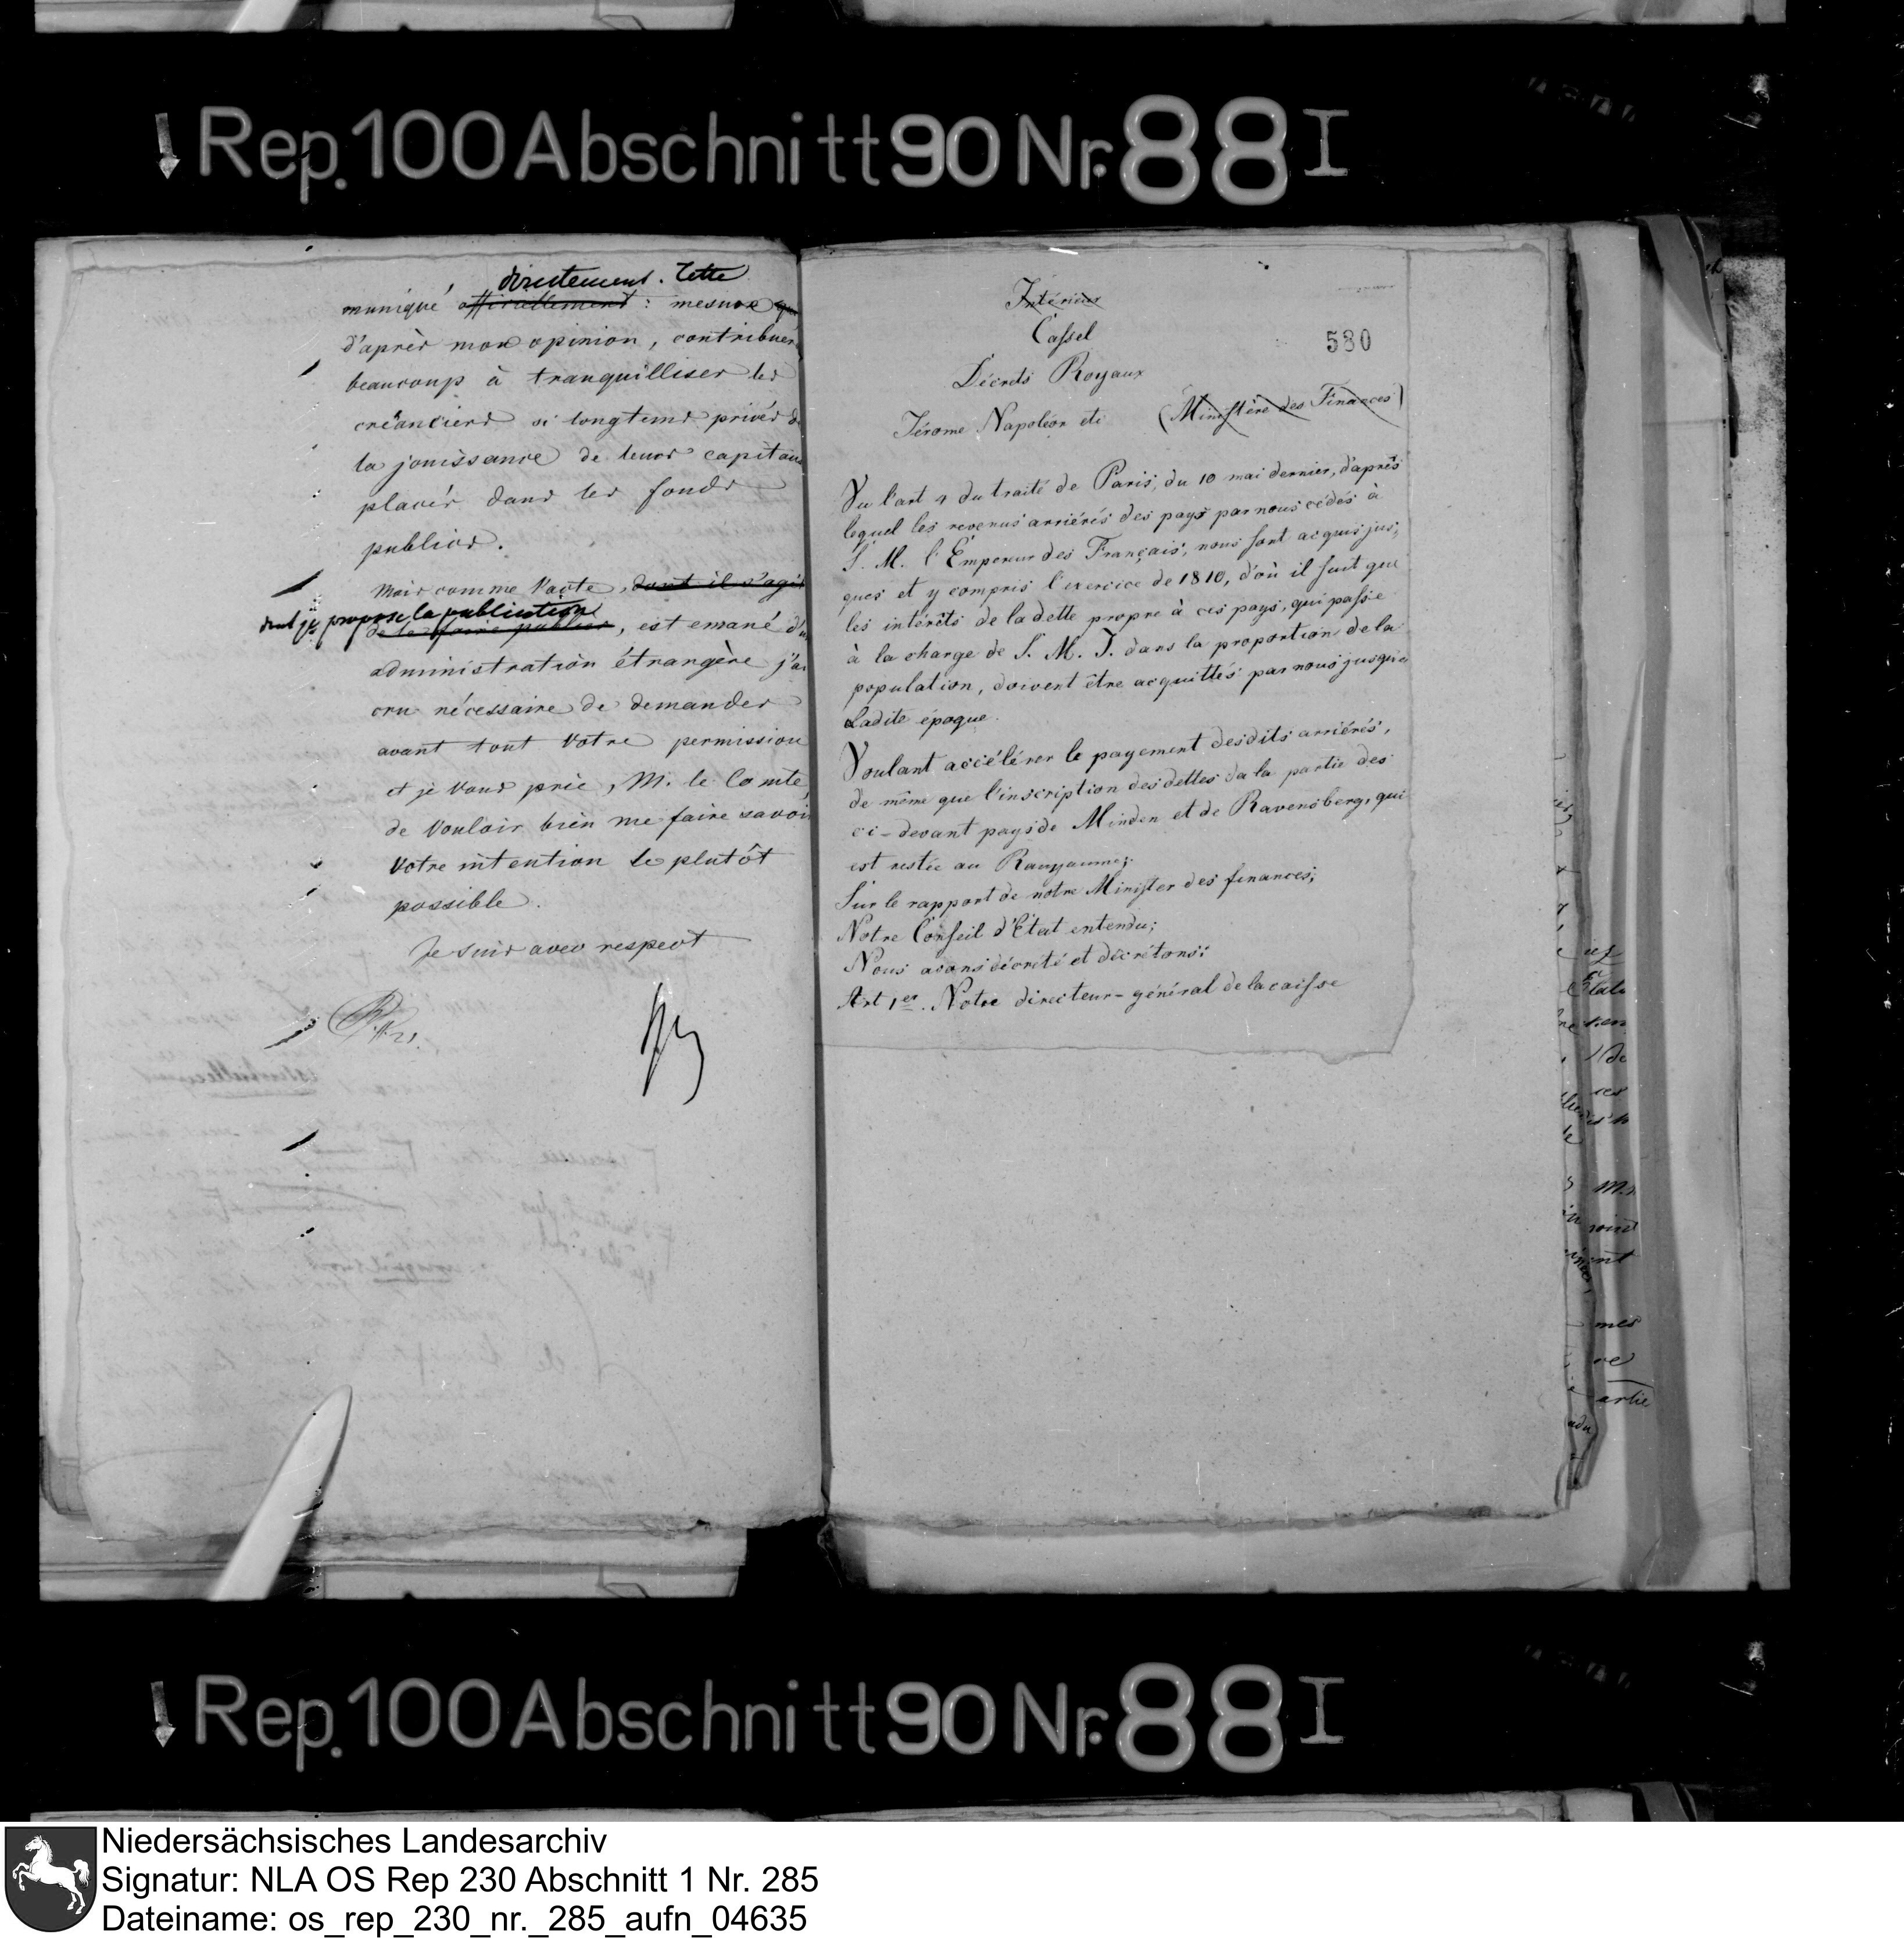 Rep. 100 Abschnitt 90 Nr. 88 I
directement. Cette
muniqué officiellement : mesure
d'après mon opinion, contribuer
beaucoup à tranquilliser les
créanciers si longtems privés de
la jouissance de leurs capitaux
placés dans les fonds
publics.
Mais comme l'acte, dont il s'agit
dont je propose la publication
de le faire publier, est emané d'u
administration étrangère j'ai
cru nécessaire de demander
avant tout Votre permission
et je Vous prie, M. le Comte,
de Vouloir bien me faire savoir
Votre intention le plutôt
possible.
Je suis avec respect
Intérieur
Cassel
580
Décrets Royaux
(Ministère des Finances)
Jérome Napoléon etc
Vu l'art 4 du traité de Paris, du 10 mai dernier, d'après
lequel les revenus arriérés des pays par nous cédés à
S. M. l'Empereur des Français, nous sont acquis jus;
ques et y compris l'exercice de 1810, d'où il suit que
les intérêts de la dette propre à ces pays, qui passe
à la charge de S. M. I. dans la proportion de la
population, doivent être acquittés par nous jusqu'a
Ladite époque.
Voulant accélérer le payement desdits arriérés,
de même que l'inscription des dettes da la partie des
ci-devant pays de Minden et de Ravensberg, qui
est restée au Rauyaume;
Sur le rapport de notre Minister des finances;
Notre Conseil d'Etat entendu;
Nous avons décreté et décrétons:
Art 1er. Notre directeur-général de la caisse
Rep. 100 Abschnitt 90 Nr. 88 I
Niedersächsisches Landesarchiv
Signatur: NLA OS Rep 230 Abschnitt 1 Nr. 285
Dateiname: os_rep_230_nr._285_aufn_04635